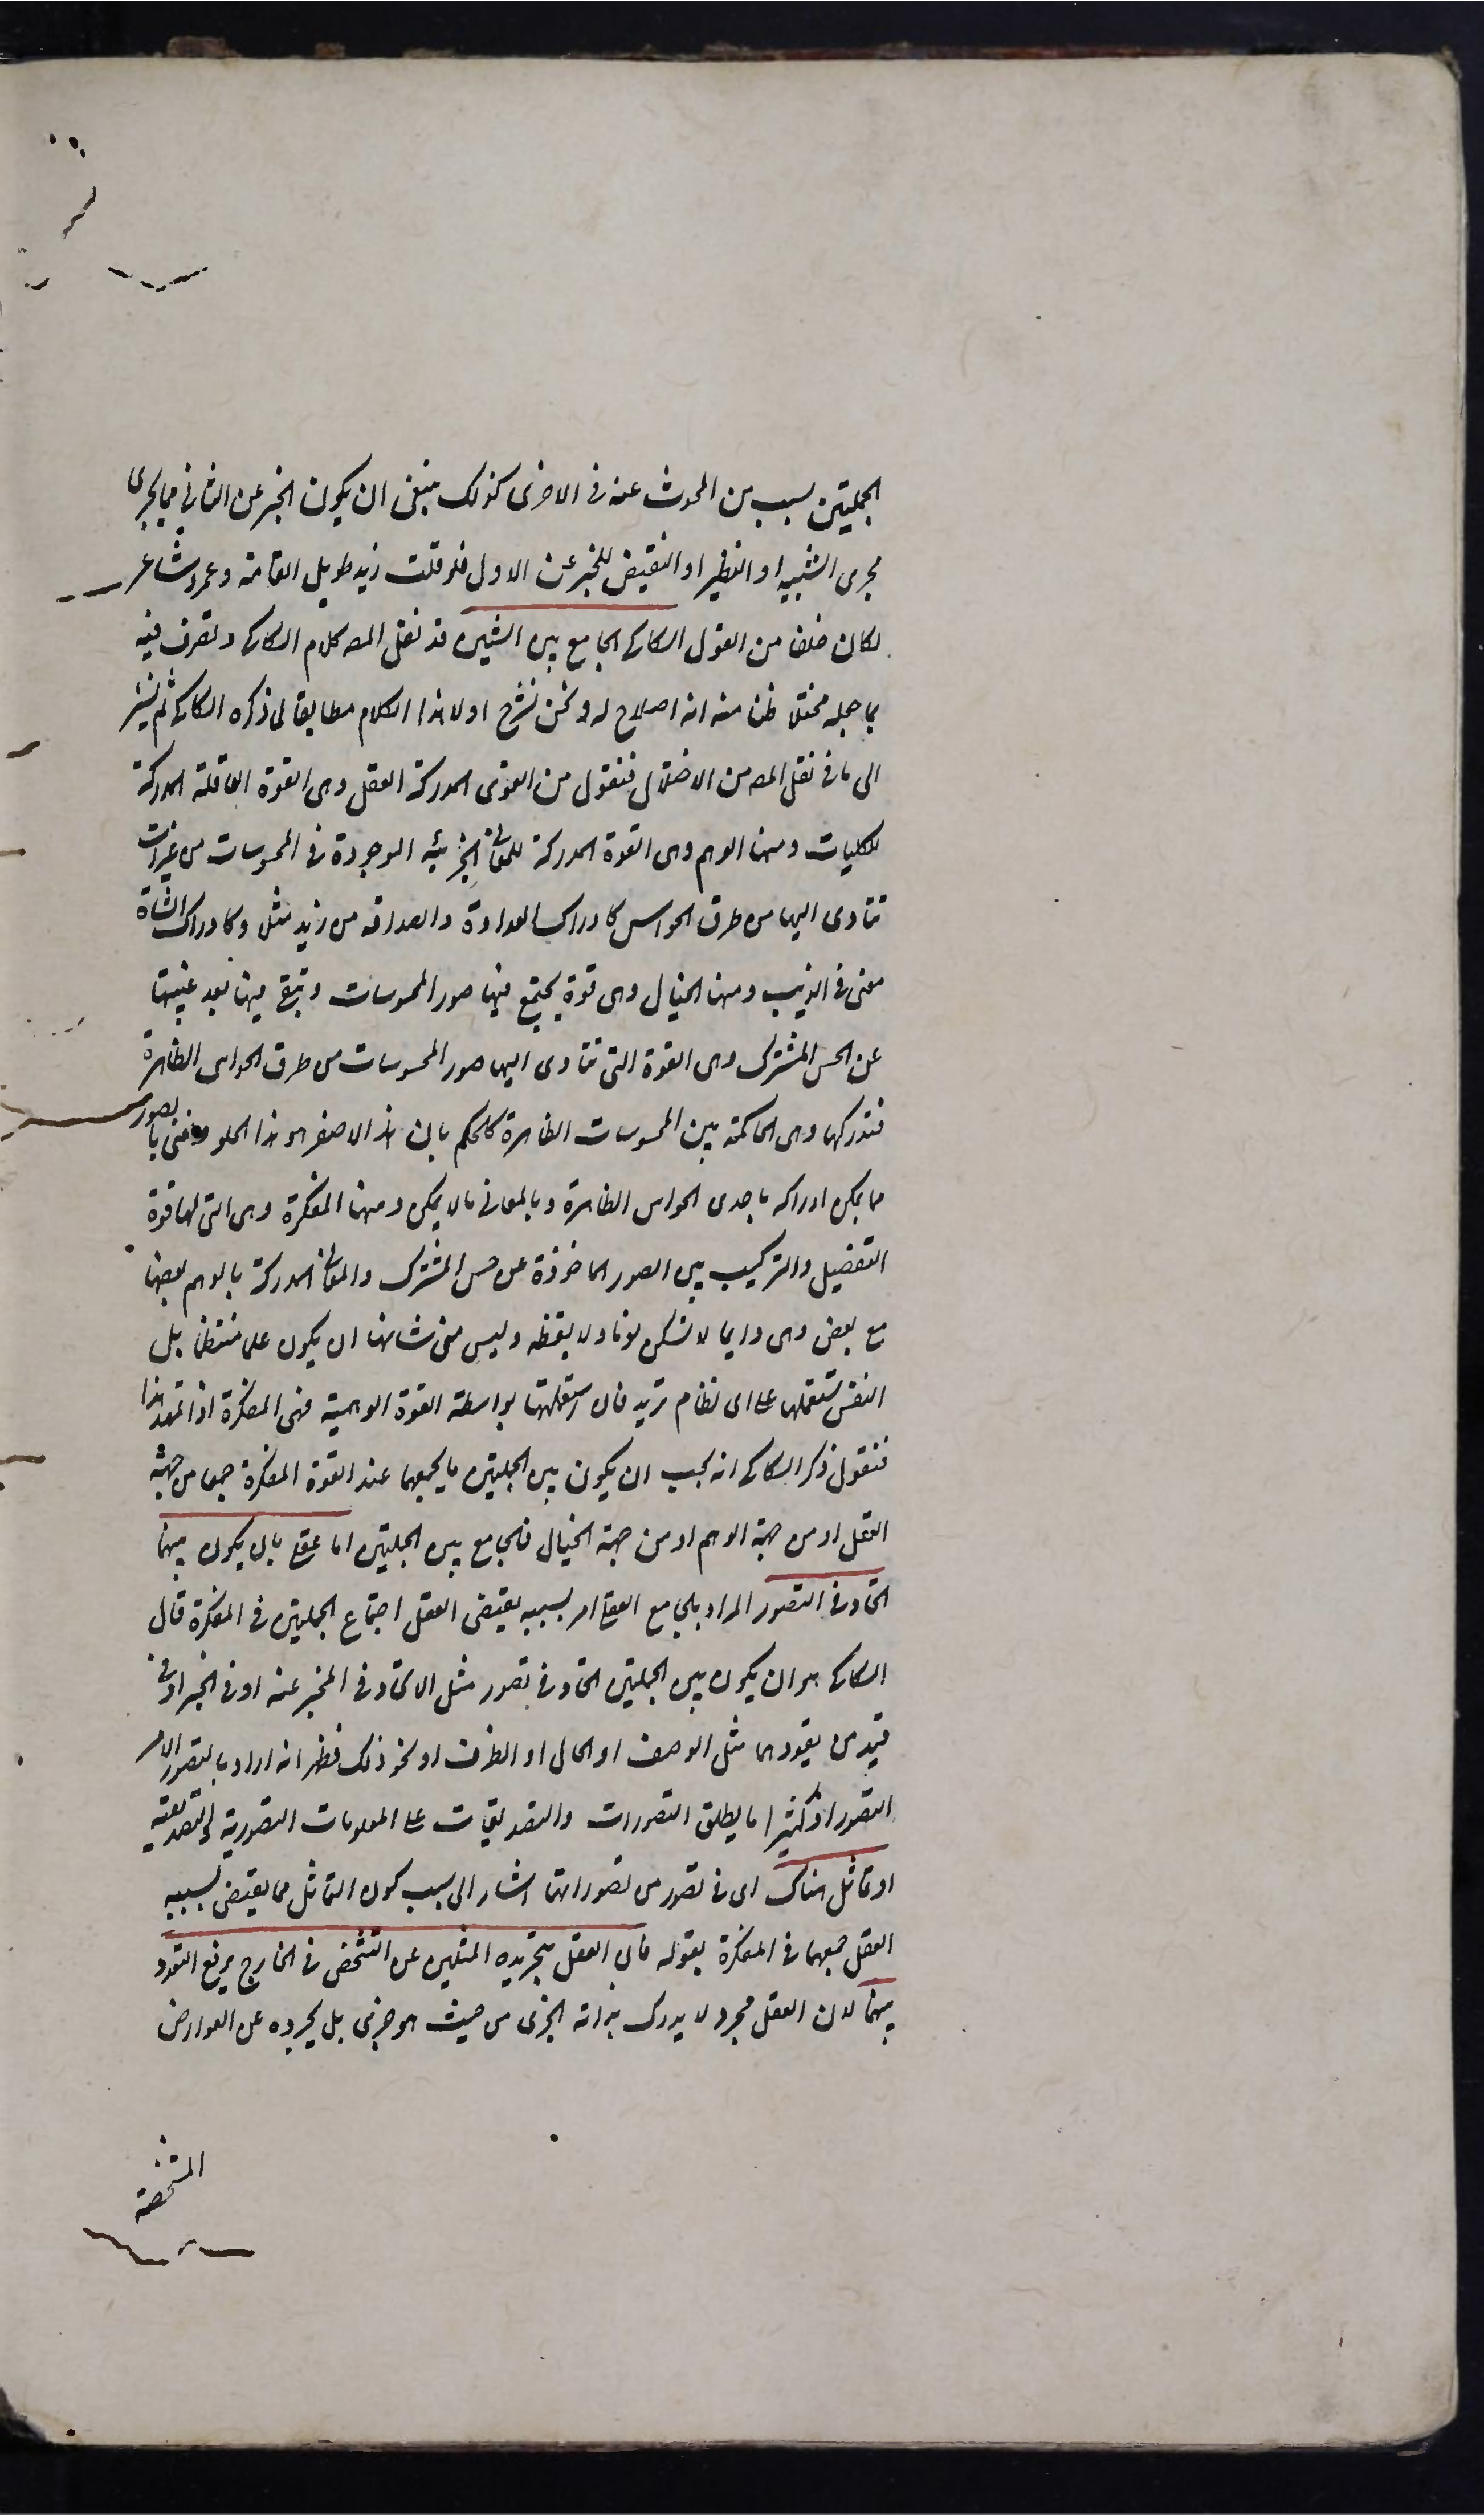 الجملتين بسبب من المحدث عنه فى الاخرى كذلك ينبغى ان يكون الخبر عن الثانى مما يجرى
مجرى الشبيه او النظير او النقيض للخبر عن الاول فلو قلت زيد طويل القامة وعمرو شاعر
لكان خلفا من القول السكاكى الجامع بين الشيئين قد نقل المصـ كلام السكاكى وتصرف فيه
بما جعله مختلا ظنا منه انه اصلاح له ونحن نشرح اولا هذا الكلام مطابقا لما ذكره السكاكى ثم نشير
الى ما فى نقل المصـ من الاختلال فنقول من القوى المدركة العقل وهى القوة العاقلة المدركة
للكليات ومنها الوهم وهى القوة المدركة للمعانى الجزئية الموجودة فى المحسوسات من غير ان
تتادى اليها من طرق الحواس كادراك العداوة والصداقة من زيد مثلا وكادراك الشاة
معنى فى الذئب ومنها الخيال وهى قوة يجتمع فيها صور المحسوسات وتبقى فيها بعد غيبتها
عن الحس المشترك وهى القوة التى تتادى اليها صور المحسوسات من طرق الحواس الظاهرة
فتدركها وهى الحاكمة بين المحسوسات الظاهرة كالحكم بان هذا الاصفر هو هذا الحلو ونعنى بالصور
ما يمكن ادراكه باحدى الحواس الظاهرة وبالمعانى ما لا يمكن ومنها المفكرة وهى التى لها قوة
التفصيل والتركيب بين الصور الماخوذة عن حس المشترك والمعانى المدركة بالوهم بعضها
مع بعض وهى دايما لا تسكن نوما ولا يقظة وليس من شانها ان يكون عملها منتظما بل
النفس تستعملها على اى نظام تريد فان استعملتها بواسطة القوة الوهمية فهى المفكرة اذا تمهد هذا
فنقول ذكر السكاكى انه يجب ان يكون بين الجملتين ما يجمعهما عند القوة المفكرة جمعا من جهة
العقل او من جهة الوهم او من جهة الخيال فالجامع بين الجملتين اما عقلى بان يكون بينهما
اتحاد فى التصور المراد بالجامع العقلى امر بسببه يقتضى العقل اجتماع الجملتين فى المفكرة قال
السكاكى هو ان يكون بين الجملتين اتحاد فى تصور مثل الاتحاد فى المخبر عنه او فى الخبر او فى
قيد من قيودهما مثل الوصف او الحال او الظرف او نحو ذلك فظهر انه اراد بالتصور الامر
المتصور اذ كثيرا ما يطلق التصورات والتصديقات على المعلومات التصورية والتصديقية
او تماثل هناك اى فى تصور من تصوراتهما اشار الى سبب كون التماثل مما يقتضى بسببه
العقل جمعهما فى المفكرة بقوله فان العقل بتجريده المثلين عن التشخص فى الخارج يرفع التعدد
بينهما لان العقل مجرد لا يدرك بذاته الجزئى من حيث هو جزئى بل يجرده عن العوارض
المشخصة